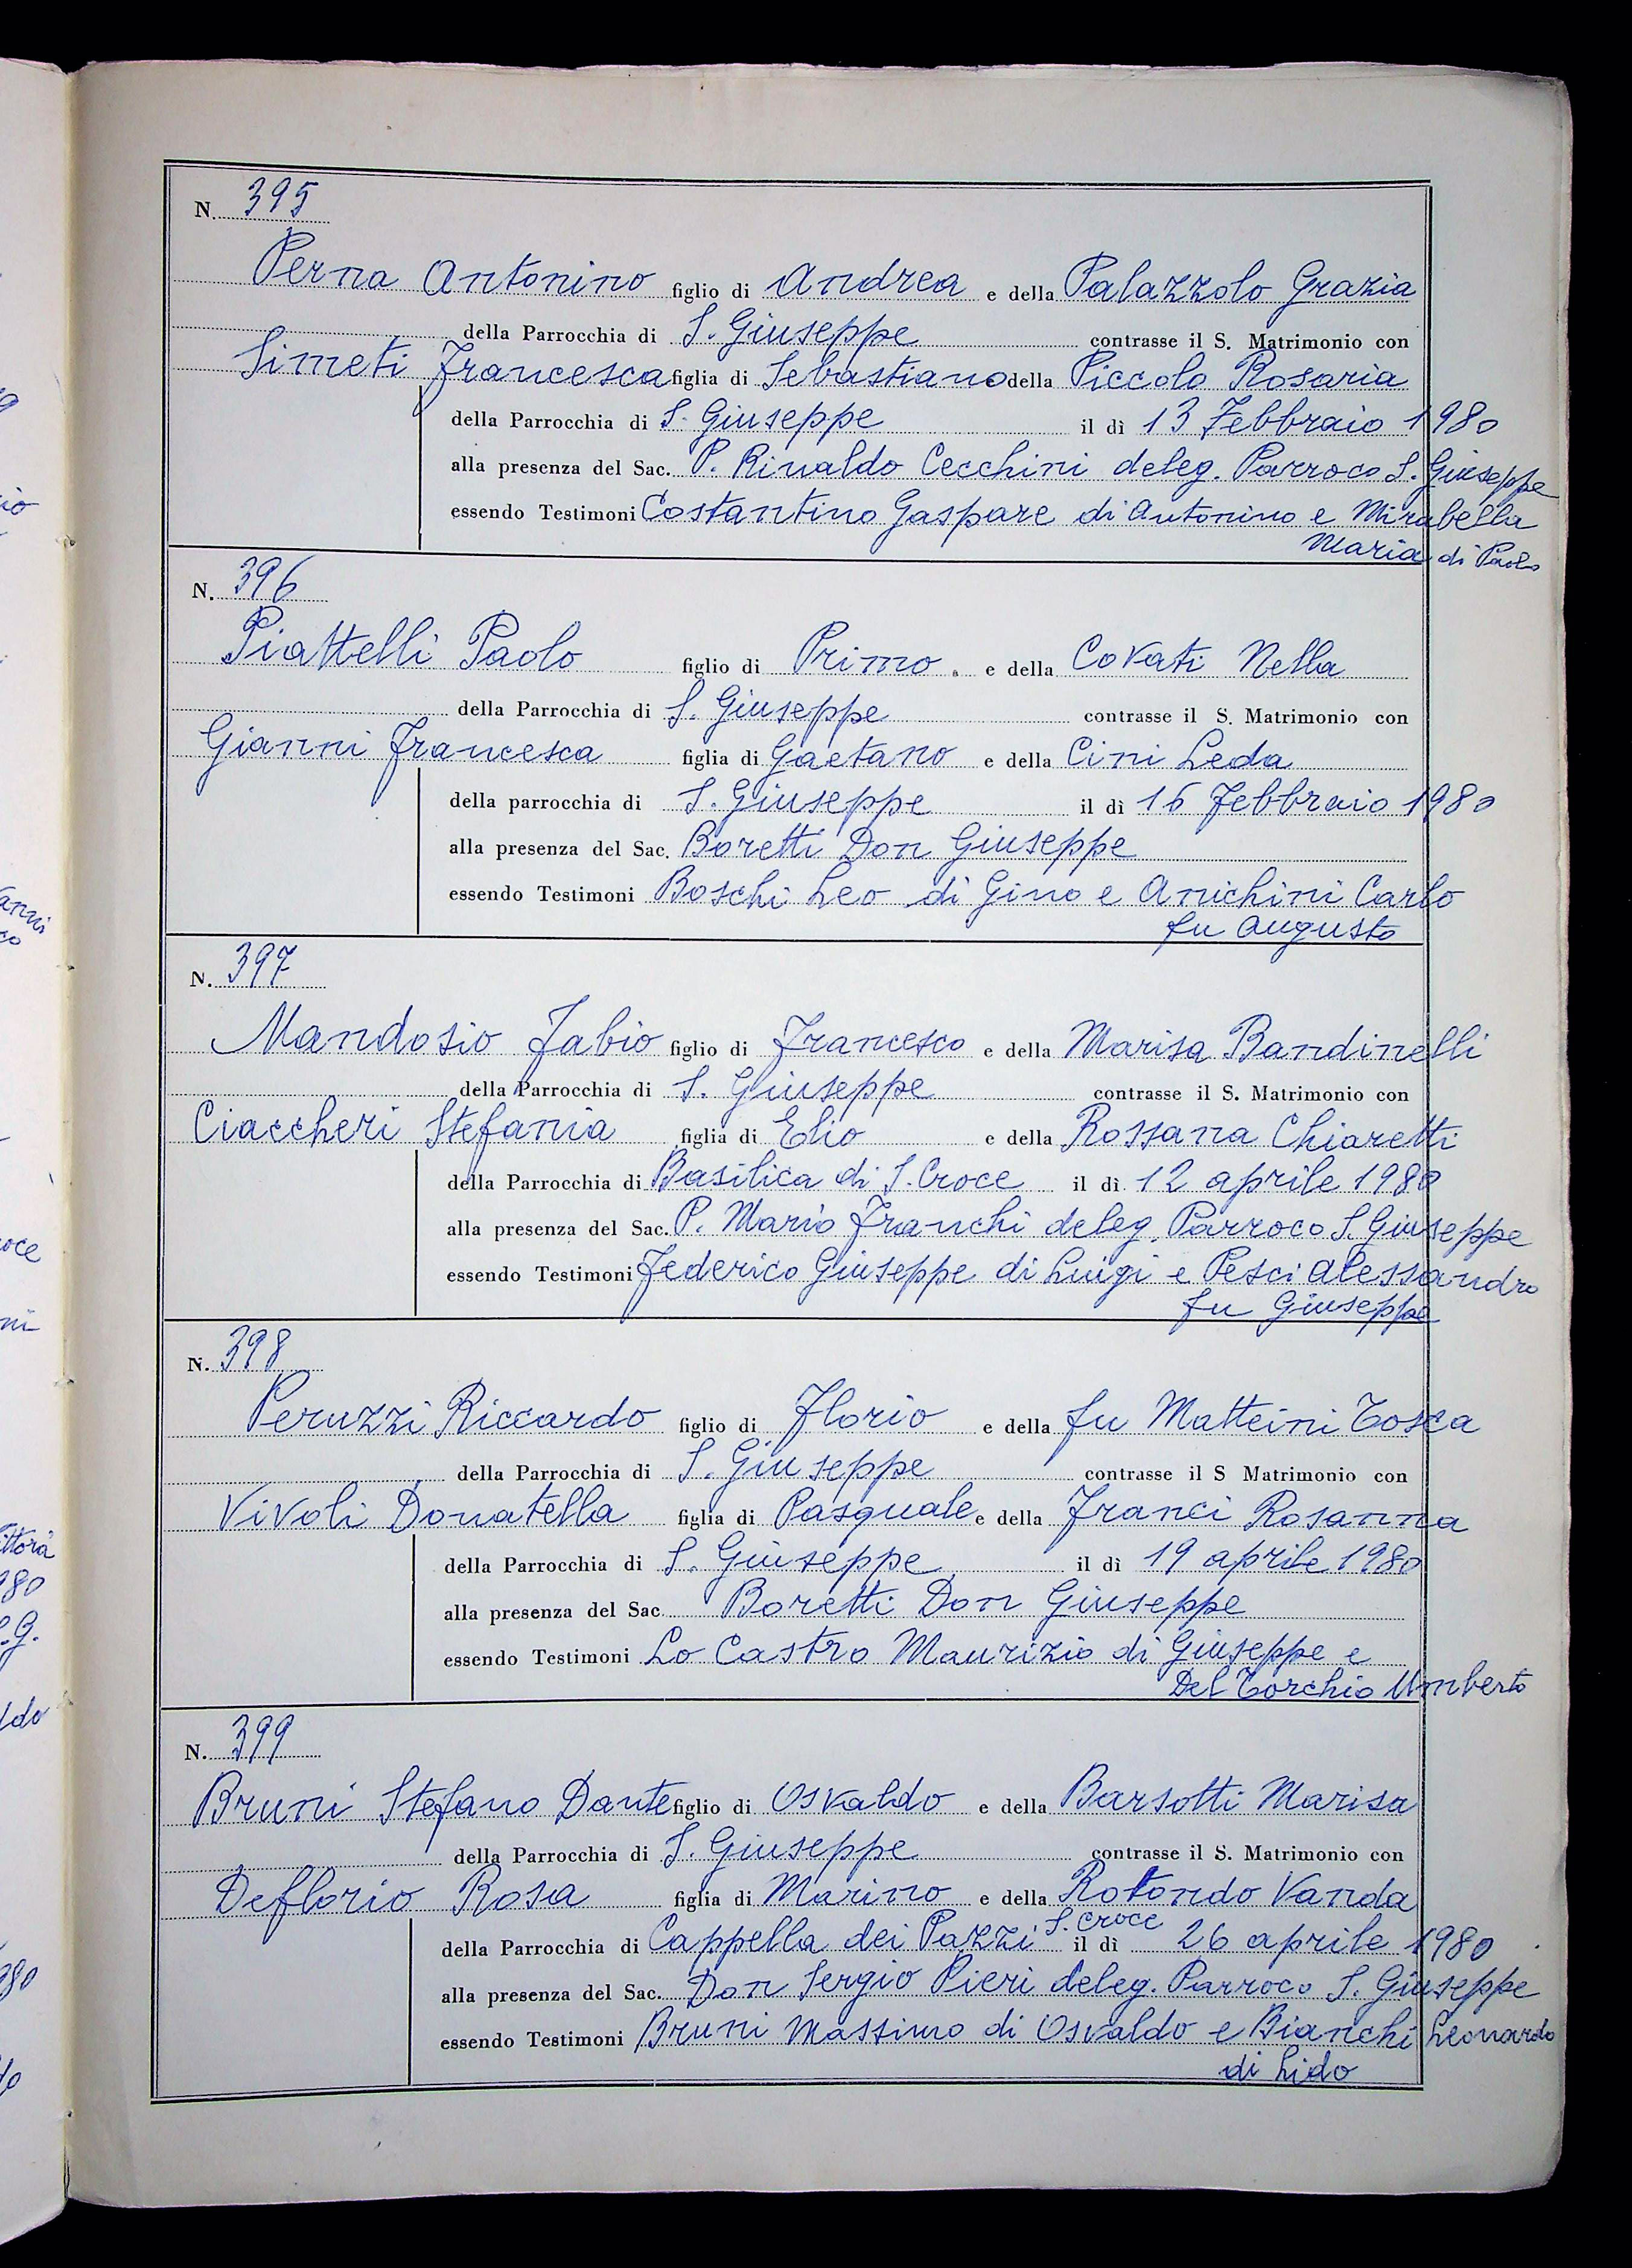 N. 395
Perna Antonino figlio di Andrea e della Palazzolo Grazia
della Parrocchia di S. Giuseppe contrasse il S. Matrimonio con
Simeti Francesca figlia di Sebastiano della Piccolo Rosaria
della Parrocchia di S. Giuseppe il dì 13 Febbraio 1980
alla presenza del Sac. P. Rinaldo Cecchini deleg. Parroco S. Giuseppe
essendo Testimoni Costantino Gaspare di Antonino e Mirabella
Maria di Paolo
N. 396
Piattelli Paolo figlio di Primo e della Covati Nella
della Parrocchia di S. Giuseppe contrasse il S. Matrimonio con
Gianni Francesca figlia di Gaetano e della Cini Leda
della parrocchia di S. Giuseppe il dì 16 Febbraio 1980
alla presenza del Sac. Boretti Don Giuseppe
essendo Testimoni Boschi Leo di Gino e Anichini Carlo
fu Augusto
N. 397
Mandosio Fabio figlio di Francesco e della Marisa Bandinelli
della Parrocchia di S. Giuseppe contrasse il S. Matrimonio con
Ciaccheri Stefania figlia di Elio e della Rossana Chiaretti
della Parrocchia di Basilica di S. Croce il dì 12 aprile 1980
alla presenza del Sac. P. Mario Franchi deleg. Parroco S. Giuseppe
essendo Testimoni Federico Giuseppe di Luigi e Pesci Alessandro
fu Giuseppe
N. 398
Peruzzi Riccardo figlio di Florio e della fu Matteini Tosca
della Parrocchia di S. Giuseppe contrasse il S Matrimonio con
Vivoli Donatella figlia di Pasquale e della Franci Rosanna
della Parrocchia di S. Giuseppe il dì 19 aprile 1980
alla presenza del Sac. Boretti Don Giuseppe
essendo Testimoni Lo Castro Maurizio di Giuseppe e
Del Torchio Umberto
N. 399
Bruni Stefano Dante figlio di Osvaldo e della Barsotti Marisa
della Parrocchia di S. Giuseppe contrasse il S. Matrimonio con
Deflorio Rosa figlia di Marino e della Rotondo Vanda
della Parrocchia di Cappella dei Pazzi S. Croce il dì 26 aprile 1980
alla presenza del Sac. Don Sergio Pieri deleg. Parroco S. Giuseppe
essendo Testimoni Bruni Massimo di Osvaldo e Bianchi Leonardo
di Lido